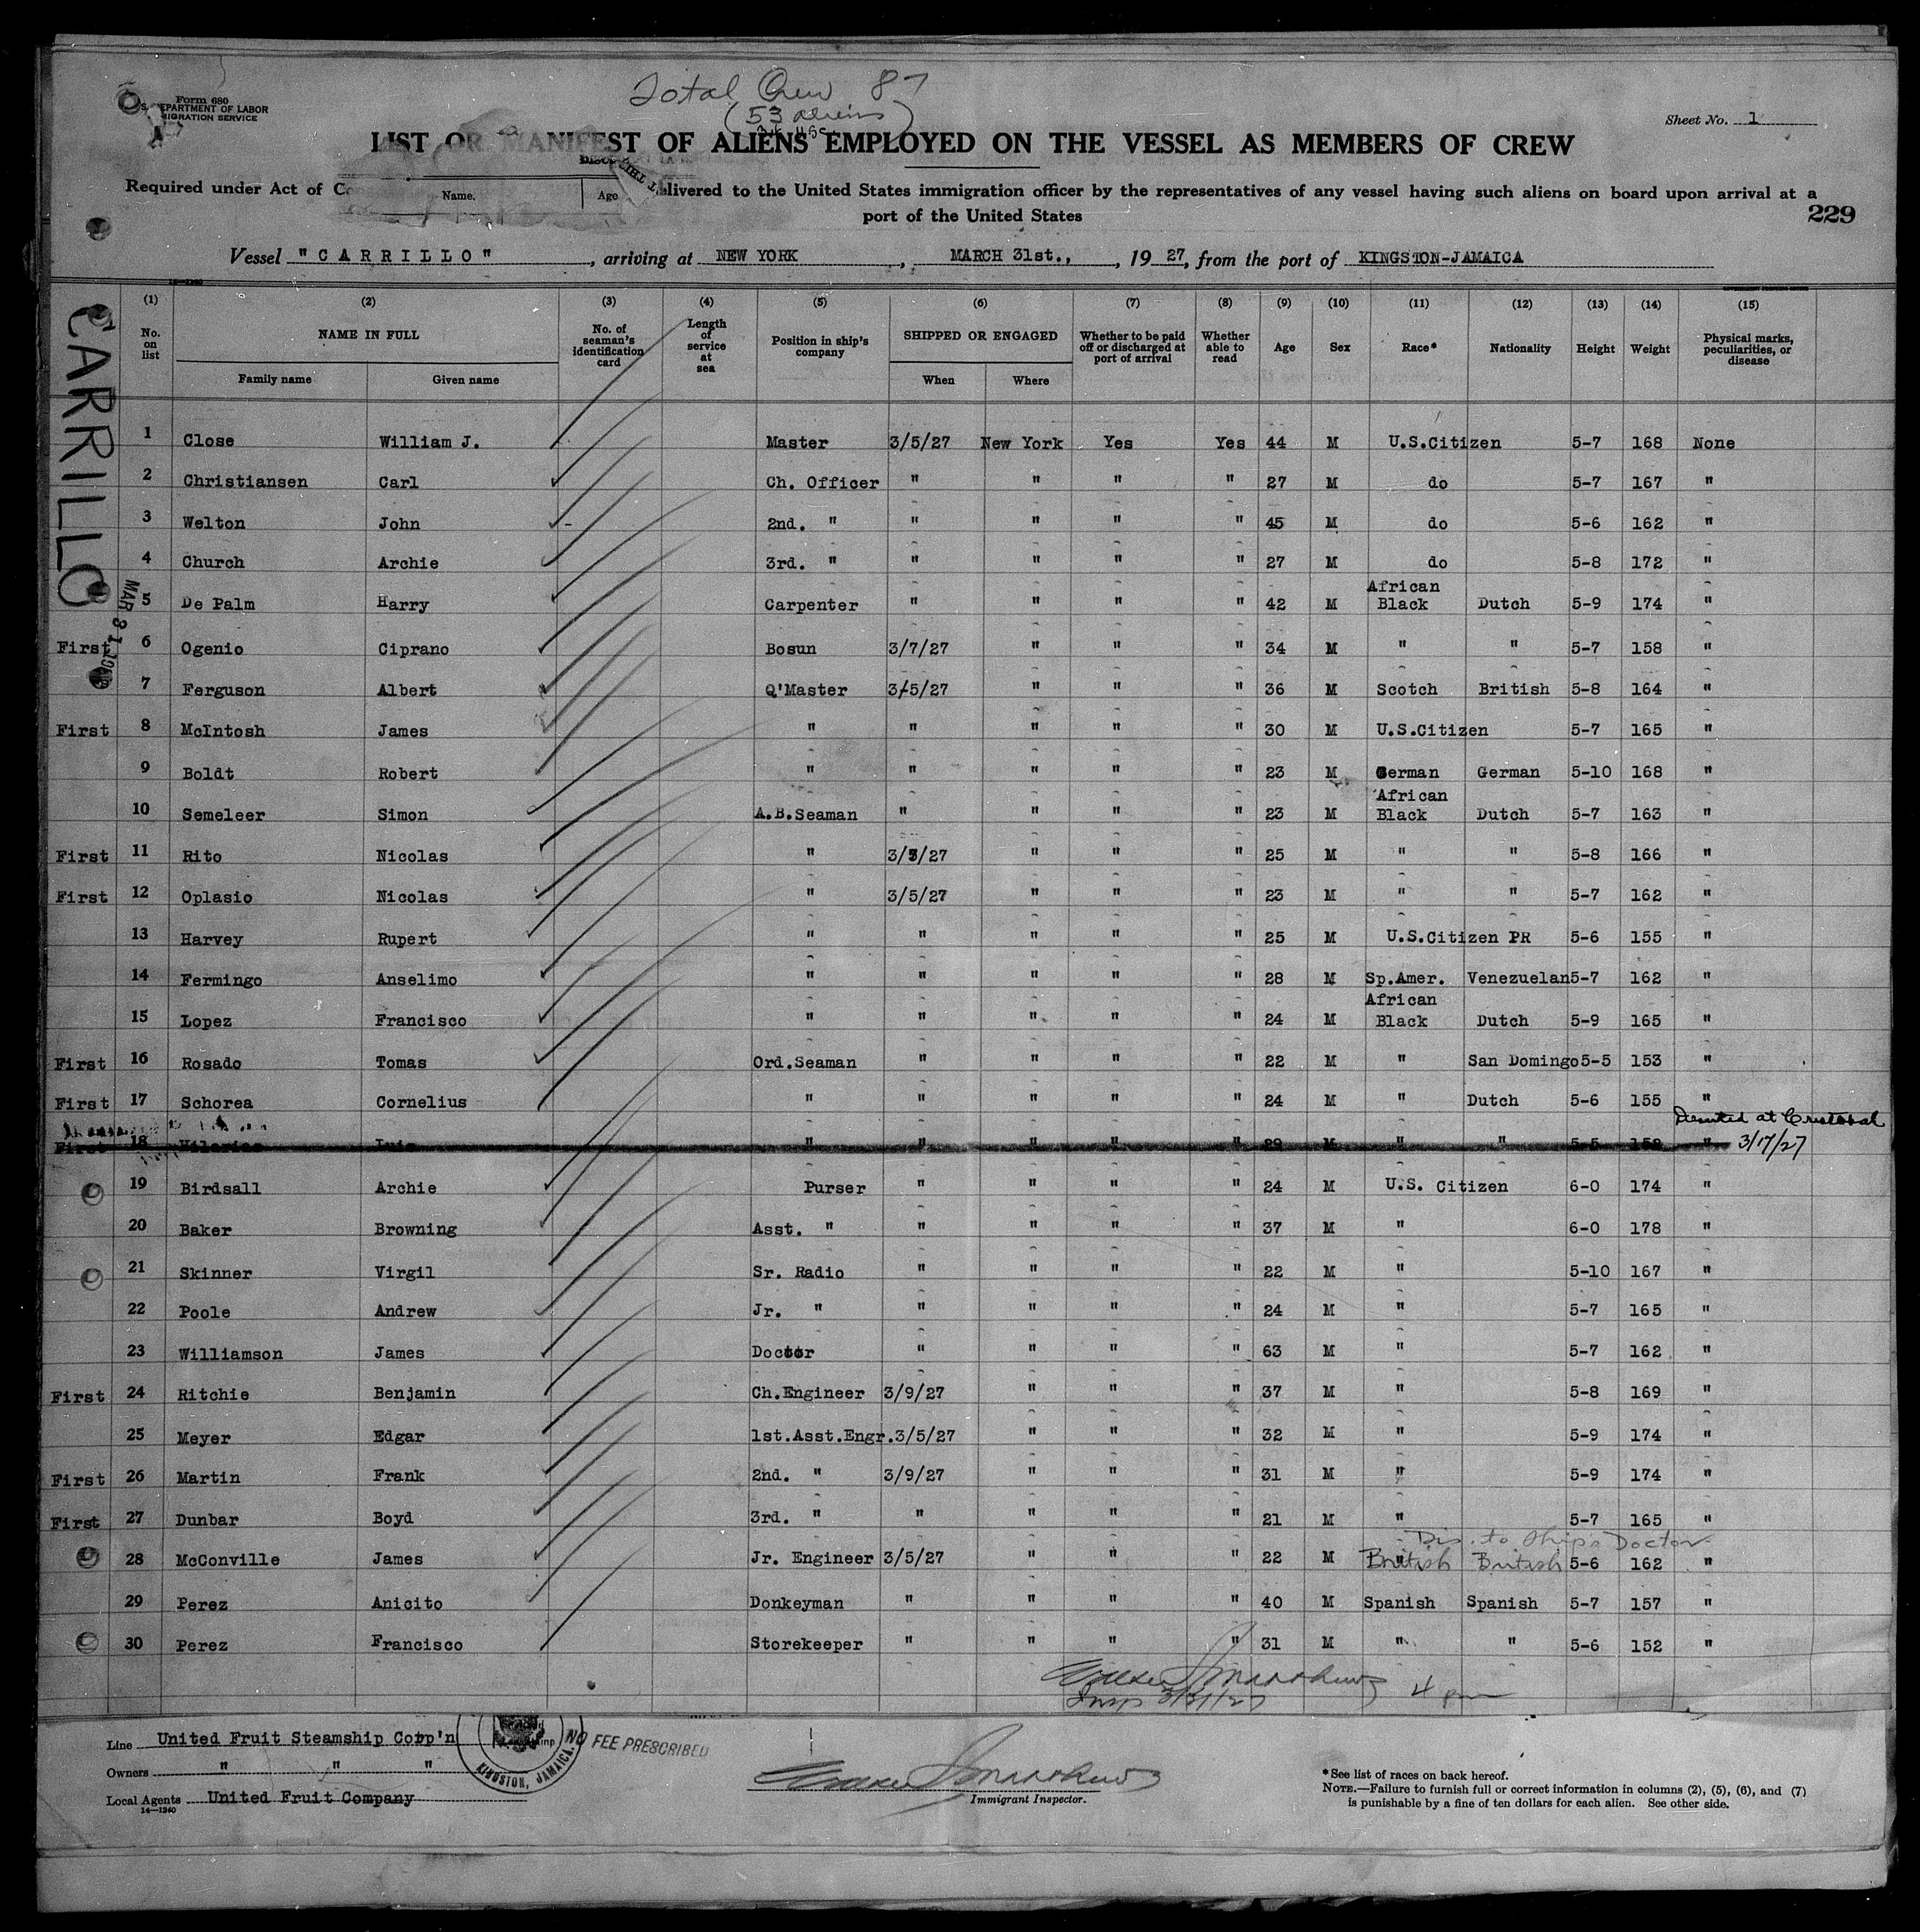 Total Crew 87
(53 aliens)
Form 680
DEPARTMENT OF LABOR
IMMIGRATION SERVICE
Sheet No. 1
LIST OR MANIFEST OF ALIENS EMPLOYED ON THE VESSEL AS MEMBERS OF CREW
Required under Act of Name. Age delivered to the United States immigration officer by the representatives of any vessel having such aliens on board upon arrival at a
port of the United States
229
Vessel "CARRILLO", arriving at NEW YORK, MARCH 31st., 1927, from the port of KINGSTON-JAMAICA
CARRILLO
(1) (2) (3) (4) (5) (6) (7) (8) (9) (10) (11) (12) (13) (14) (15)
No. on list NAME IN FULL Family name Given name No. of seaman's identification card Length of service at sea Position in ship's company SHIPPED OR ENGAGED When Where Whether to be paid off or discharged at port of arrival Whether able to read Age Sex Race* Nationality Height Weight Physical marks, peculiarities, or disease
1 Close William J. Master 3/5/27 New York Yes Yes 44 M U.S.Citizen 5-7 168 None
2 Christiansen Carl Ch. Officer " " " " 27 M do 5-7 167 "
3 Welton John 2nd. " " " " " 45 M do 5-6 162 "
4 Church Archie 3rd. " " " " " 27 M do 5-8 172 "
5 De Palm Harry Carpenter " " " " 42 M African Black Dutch 5-9 174 "
First 6 Ogenio Ciprano Bosun 3/7/27 " " " 34 M " " 5-7 158 "
7 Ferguson Albert Q'Master 3/5/27 " " " 36 M Scotch British 5-8 164 "
First 8 McIntosh James " " " " " 30 M U.S.Citizen 5-7 165 "
9 Boldt Robert " " " " " 23 M German German 5-10 168 "
10 Semeleer Simon A.B.Seaman " " " " 23 M African Black Dutch 5-7 163 "
First 11 Rito Nicolas " 3/5/27 " " " 25 M " " 5-8 166 "
First 12 Oplasio Nicolas " 3/5/27 " " " 23 M " " 5-7 162 "
13 Harvey Rupert " " " " " 25 M U.S.Citizen PR 5-6 155 "
14 Fermingo Anselimo " " " " " 28 M Sp.Amer. Venezuelan 5-7 162 "
15 Lopez Francisco " " " " " 24 M African Black Dutch 5-9 165 "
First 16 Rosado Tomas Ord.Seaman " " " " 22 M " San Domingo 5-5 153 "
First 17 Schorea Cornelius " " " " " 24 M " Dutch 5-6 155 "
First 18 Luis " " " " " 29 M " " 5-5 158 " at Cristobal 3/17/27
19 Birdsall Archie Purser " " " " 24 M U.S. Citizen 6-0 174 "
20 Baker Browning Asst. " " " " " 37 M " 6-0 178 "
21 Skinner Virgil Sr. Radio " " " " 22 M " 5-10 167 "
22 Poole Andrew Jr. " " " " " 24 M " 5-7 165 "
23 Williamson James Doctor " " " " 63 M " 5-7 162 "
First 24 Ritchie Benjamin Ch.Engineer 3/9/27 " " " 37 M " 5-8 169 "
25 Meyer Edgar 1st.Asst.Engr. 3/5/27 " " " 32 M " 5-9 174 "
First 26 Martin Frank 2nd. " 3/9/27 " " " 31 M " 5-9 174 "
First 27 Dunbar Boyd 3rd. " " " " " 21 M " 5-7 165 "
Dis. to Ships Doctor
28 McConville James Jr. Engineer 3/5/27 " " " 22 M British British 5-6 162 "
29 Perez Anicito Donkeyman " " " " 40 M Spanish Spanish 5-7 157 "
30 Perez Francisco Storekeeper " " " " 31 M " " 5-6 152 "
Insp 3/31/27 4 pm
Line United Fruit Steamship Corp'n
Owners " " "
Local Agents United Fruit Company
14—1240
KINGSTON, JAMAICA.
NO FEE PRESCRIBED
Immigrant Inspector.
*See list of races on back hereof.
NOTE.—Failure to furnish full or correct information in columns (2), (5), (6), and (7)
is punishable by a fine of ten dollars for each alien. See other side.